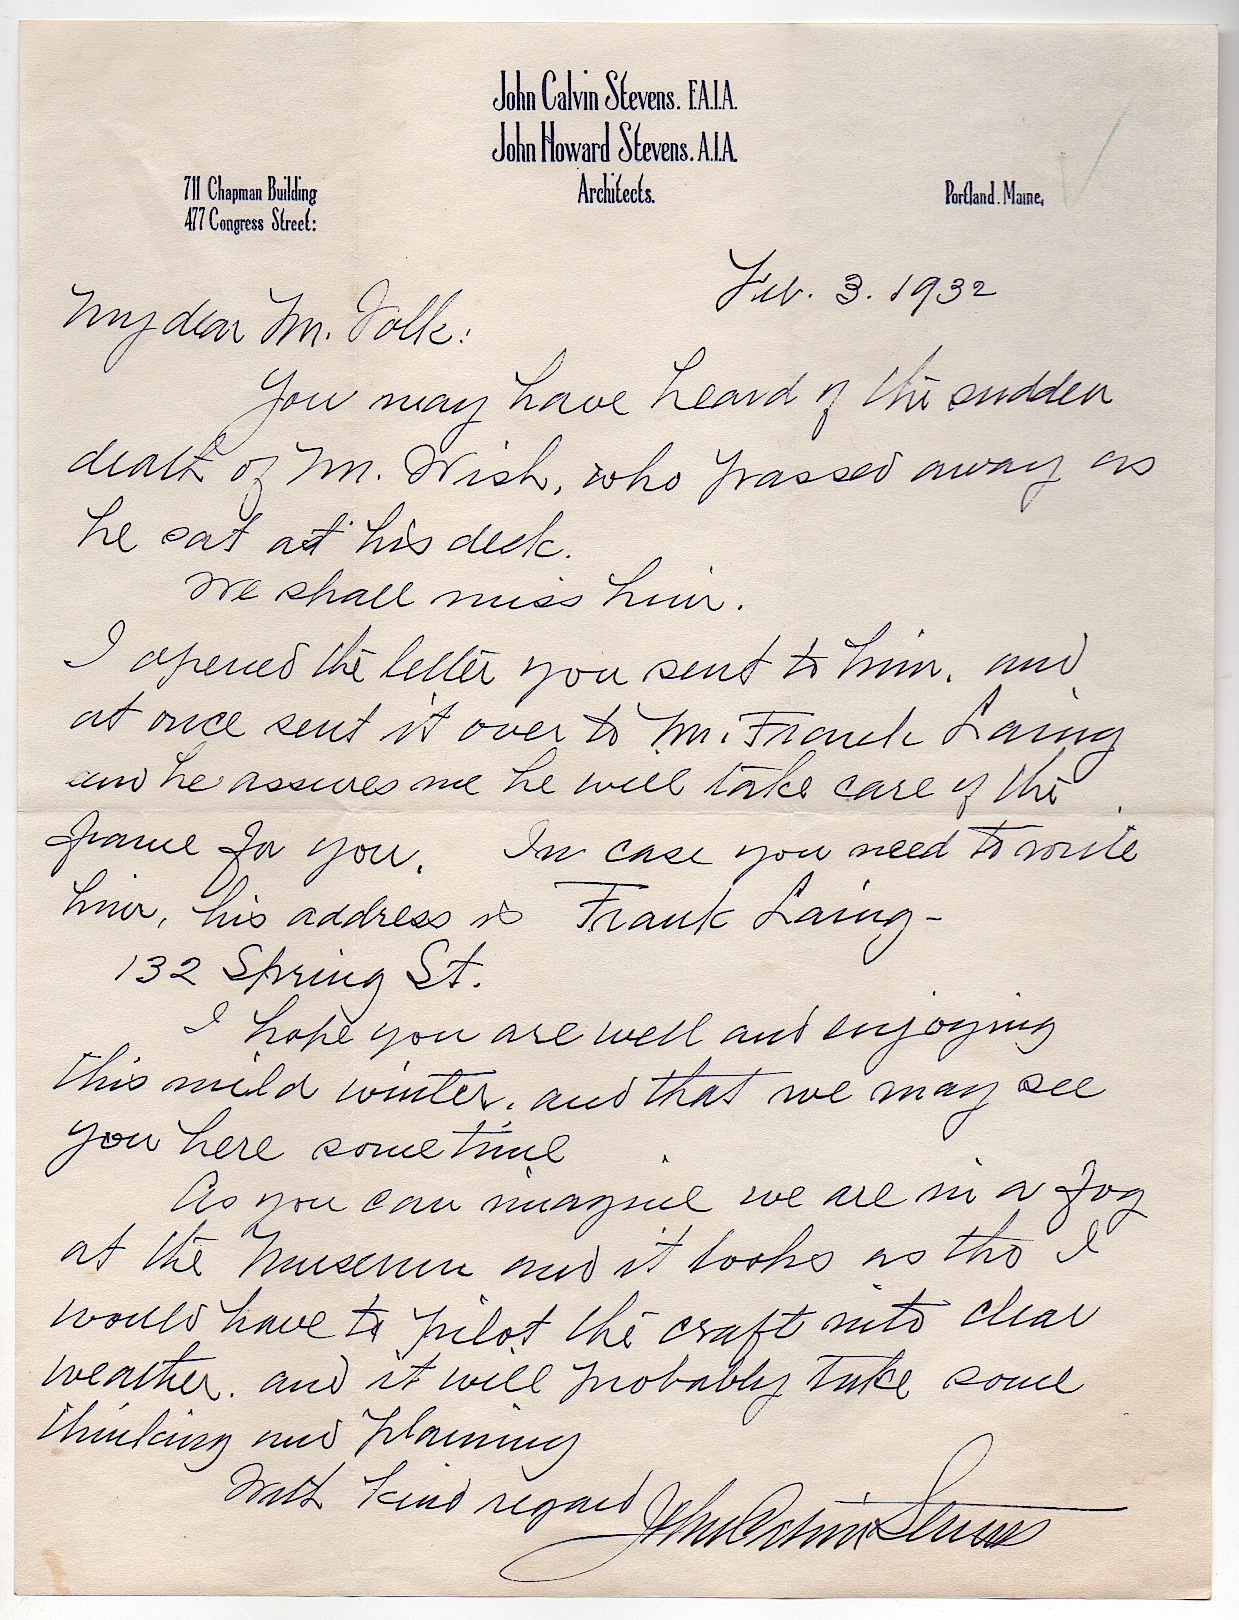 John Calvin Stevens. F.A.I.A.
John Howard Stevens. A.I.A.
Architects.
711 Chapman Building
477 Congress Street:
Portland. Maine,
Feb. 3. 1932
My dear Mr. Volk:
You may have heard of the sudden
death of Mr. Wish, who passed away as
he sat at his desk.
We shall miss him.
I opened the letter you sent to him, and
at once sent it over to Mr. Frank Laing
and he assures me he will take care of the
frame for you. In case you need to write
him, his address is Frank Laing -
132 Spring St.
I hope you are well and enjoying
this mild winter, and that we may see
you here sometime
As you can imagine we are in a fog
at the Museum and it looks as tho I
would have to pilot the craft into clear
weather. and it will probably take some
thinking and planning
With kind regard John Calvin Stevens